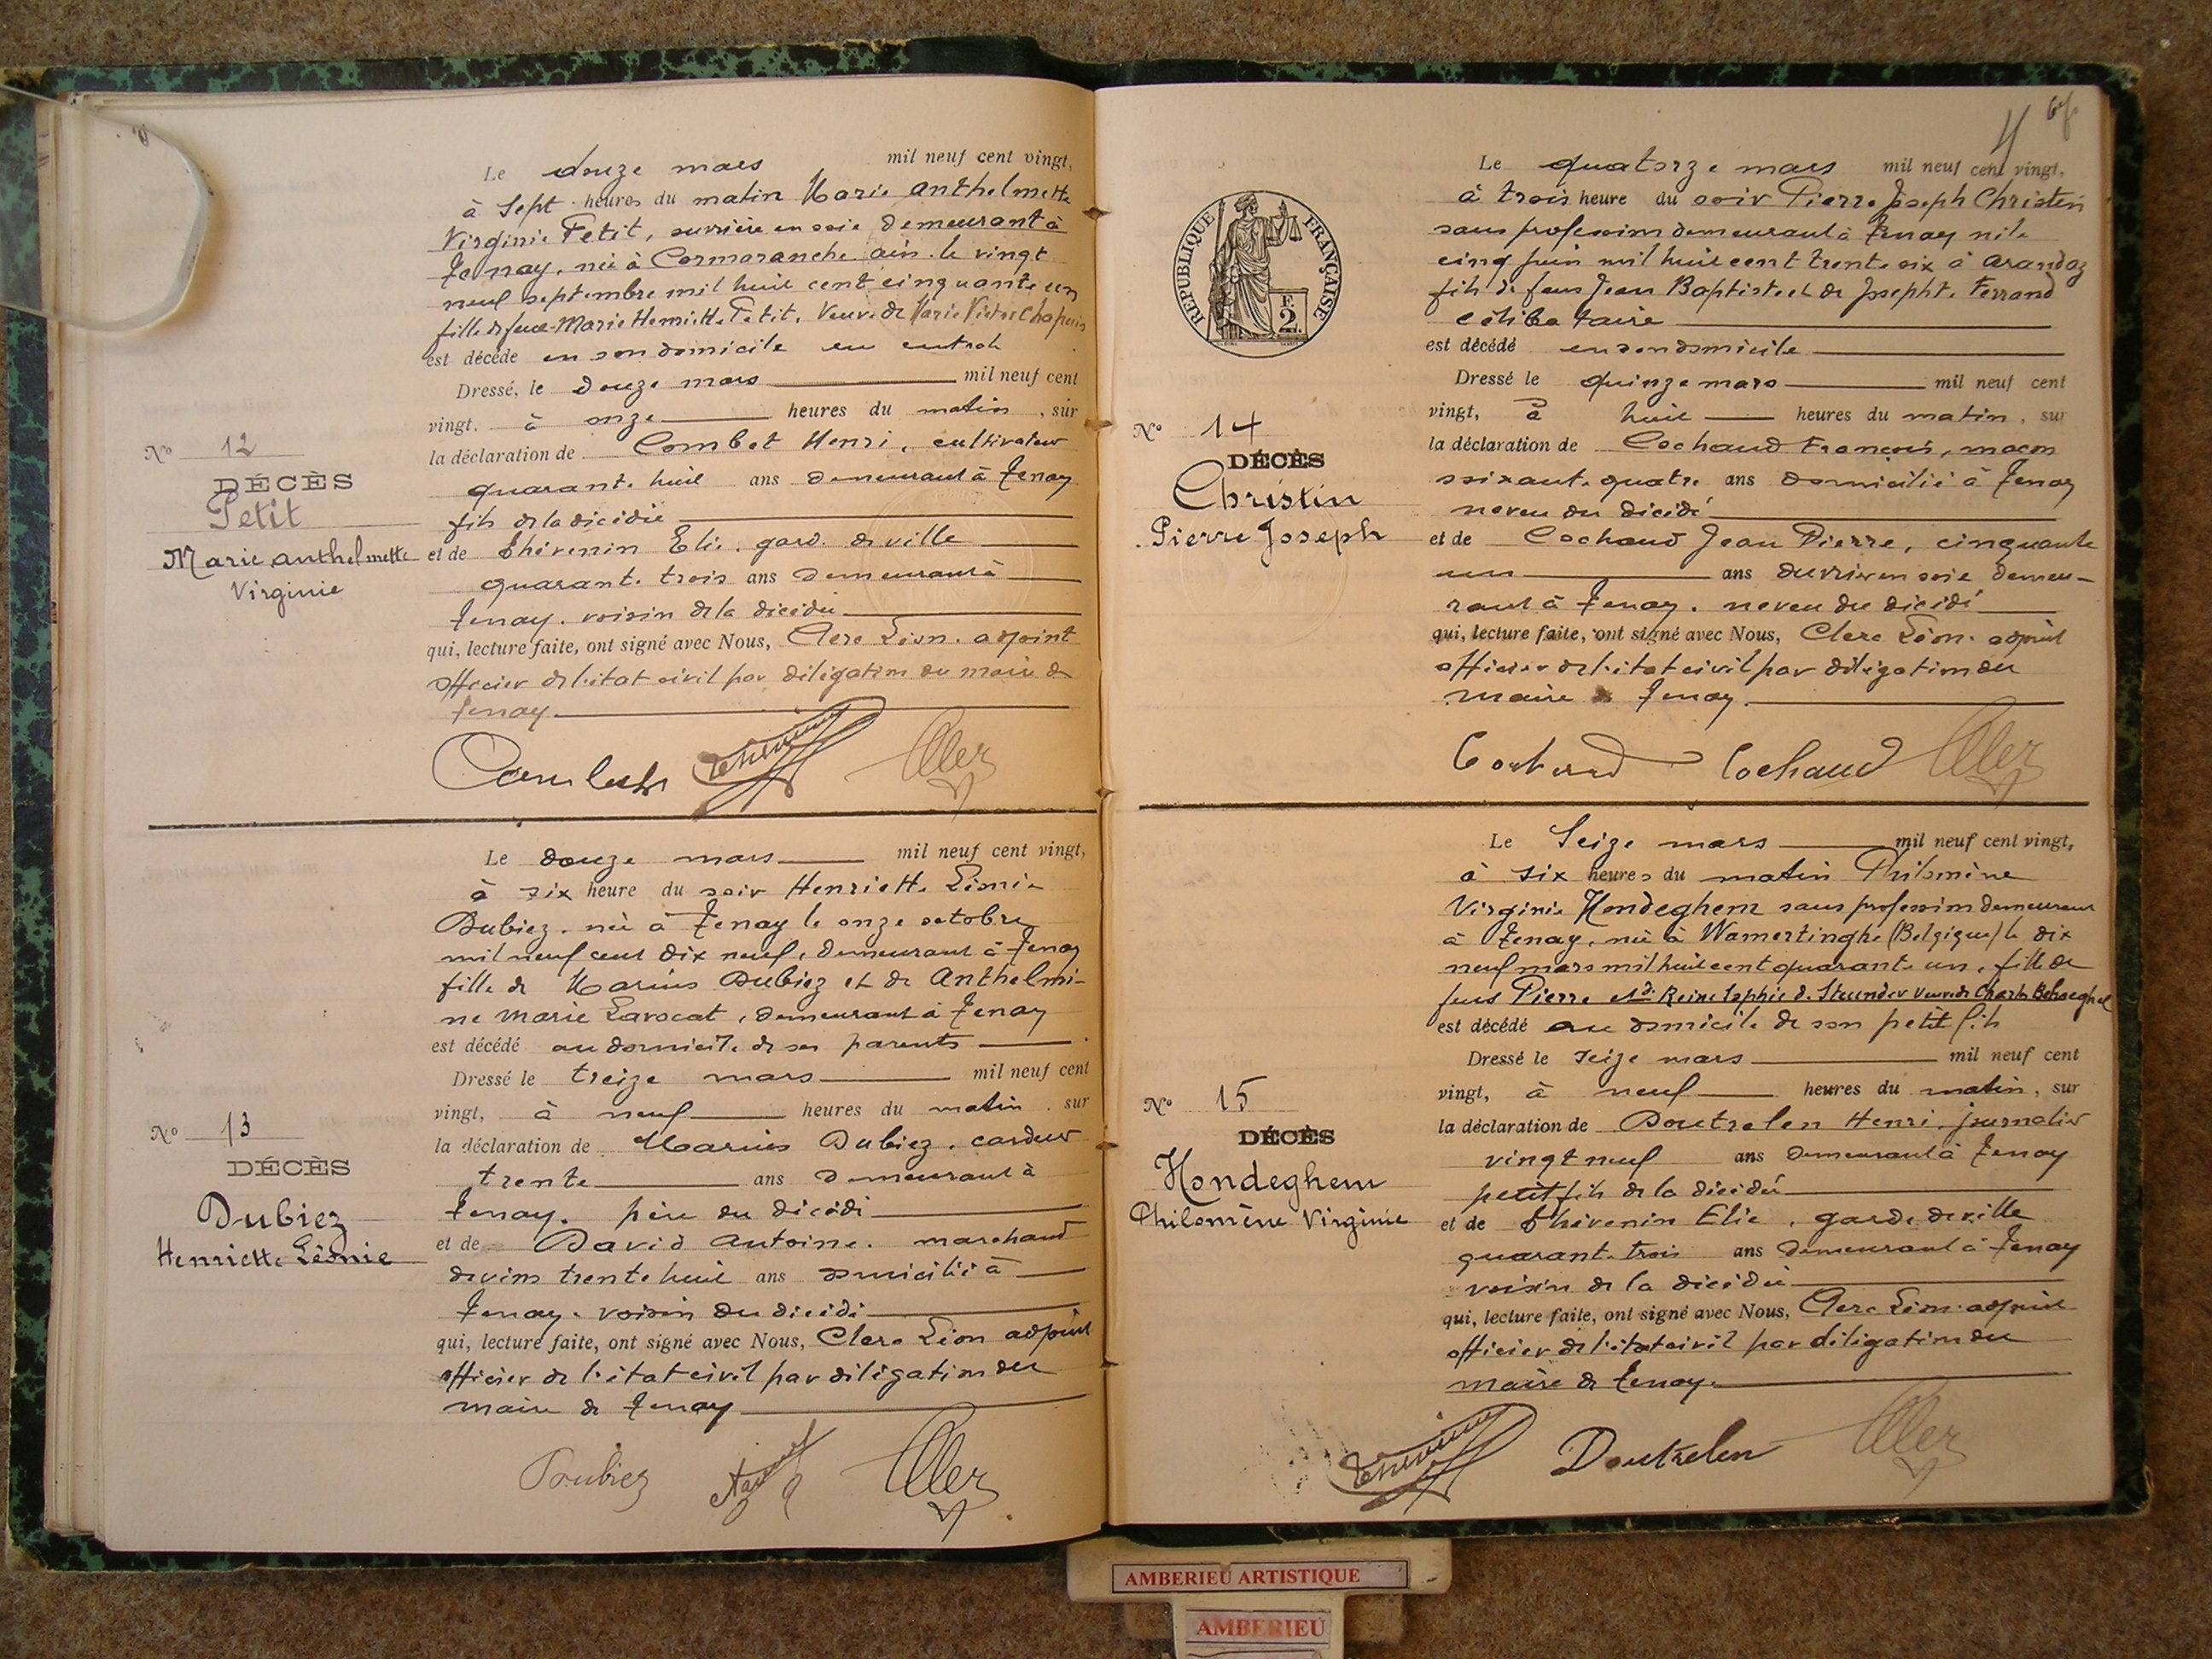 Le douze mars mil neuf cent vingt,
à Sept heures du matin Marie Anthelmette
Virginie Petit, ouvrière en soie demeurant à
Tenay, née à Cormaranche Ain le vingt
neuf septembre mil huit cent cinquante un
fille de feue Marie Henriette Petit, Veuve de Marie Victor Chapuis
est décédé en son domicile
Dressé, le douze mars mil neuf cent
vingt, à onze heures du matin, sur
la déclaration de Combet Henri, cultivateur
quarante huit ans demeurant à Tenay
fils de la décédée
et de Thévenin Elie, garde de ville
quarante trois ans demeurant à
Tenay, voisin de la décédée
qui, lecture faite, ont signé avec Nous, Clerc Léon adjoint
officier de l'état civil par délégation du maire de
Tenay
No 12
DÉCÈS
Petit
Marie Anthelmette
Virginie
Le douze mars mil neuf cent vingt,
à six heure du soir Henriette Léonie
Dubiez, née à Tenay le onze octobre
mil neuf cent dix neuf, demeurant à Tenay
fille de Marius Dubiez et de Anthelmi-
ne Marie Lavocat, demeurant à Tenay
est décédé au domicile de ses parents
Dressé le treize mars mil neuf cent
vingt, à neuf heures du matin, sur
la déclaration de Marius Dubiez, cardeur
trente ans demeurant à
Tenay, père du décédé
et de David Antoine, marchand
de vins trente huit ans domicilié à
Tenay, voisin du décédé
qui, lecture faite, ont signé avec Nous, Clerc Léon adjoint
officier de l'état civil par délégation du
maire de Tenay
Dubiez
No 13
DÉCÈS
Dubiez
Henriette Léonie
Le quatorze mars mil neuf cent vingt,
à trois heure du soir Pierre Joseph Christin
sans profession demeurant à Tenay né le
cinq juin mil huit cent trente six à Arandas
fils de feus Jean Baptiste et de Josephte Ferrand
célibataire
est décédé en son domicile
Dressé le quinze mars mil neuf cent
vingt, à huit heures du matin, sur
la déclaration de Cochaud François, maçon
soixante quatre ans domicilié à Tenay
neveu du décédé
et de Cochaud Jean Pierre, cinquante
un ans ouvrier en soie demeu-
rant à Tenay, neveu du décédé
qui, lecture faite, ont signé avec Nous, Clerc Léon adjoint
officier de l'état civil par délégation du
maire de Tenay.
Cochaud Cochaud
RÉPUBLIQUE FRANÇAISE
F.
2
No 14
DÉCÈS
Christin
Pierre Joseph
Le Seize mars mil neuf cent vingt,
à six heures du matin Philomène
Virginie Hondeghem sans profession demeurant
à Tenay, née à Wamertinghe (Belgique) le dix
neuf mars mil huit cent quarante un, fille de
feus Pierre et de Reine Sophie de Steunder veuve de Charles Behaeghel
est décédé au domicile de son petit fils
Dressé le seize mars mil neuf cent
vingt, à neuf heures du matin, sur
la déclaration de Doutrelen Henri, journalier
vingt neuf ans demeurant à Tenay
petit fils de la décédée
et de Thévenin Elie, garde de ville
quarante trois ans demeurant à Tenay
voisin de la décédée
qui, lecture faite, ont signé avec Nous, Clerc Léon adjoint
officier de l'état civil par délégation du
maire de Tenay.
Doutrelen
No 15
DÉCÈS
Hondeghem
Philomène Virginie
AMBERIEU ARTISTIQUE
AMBERIEU